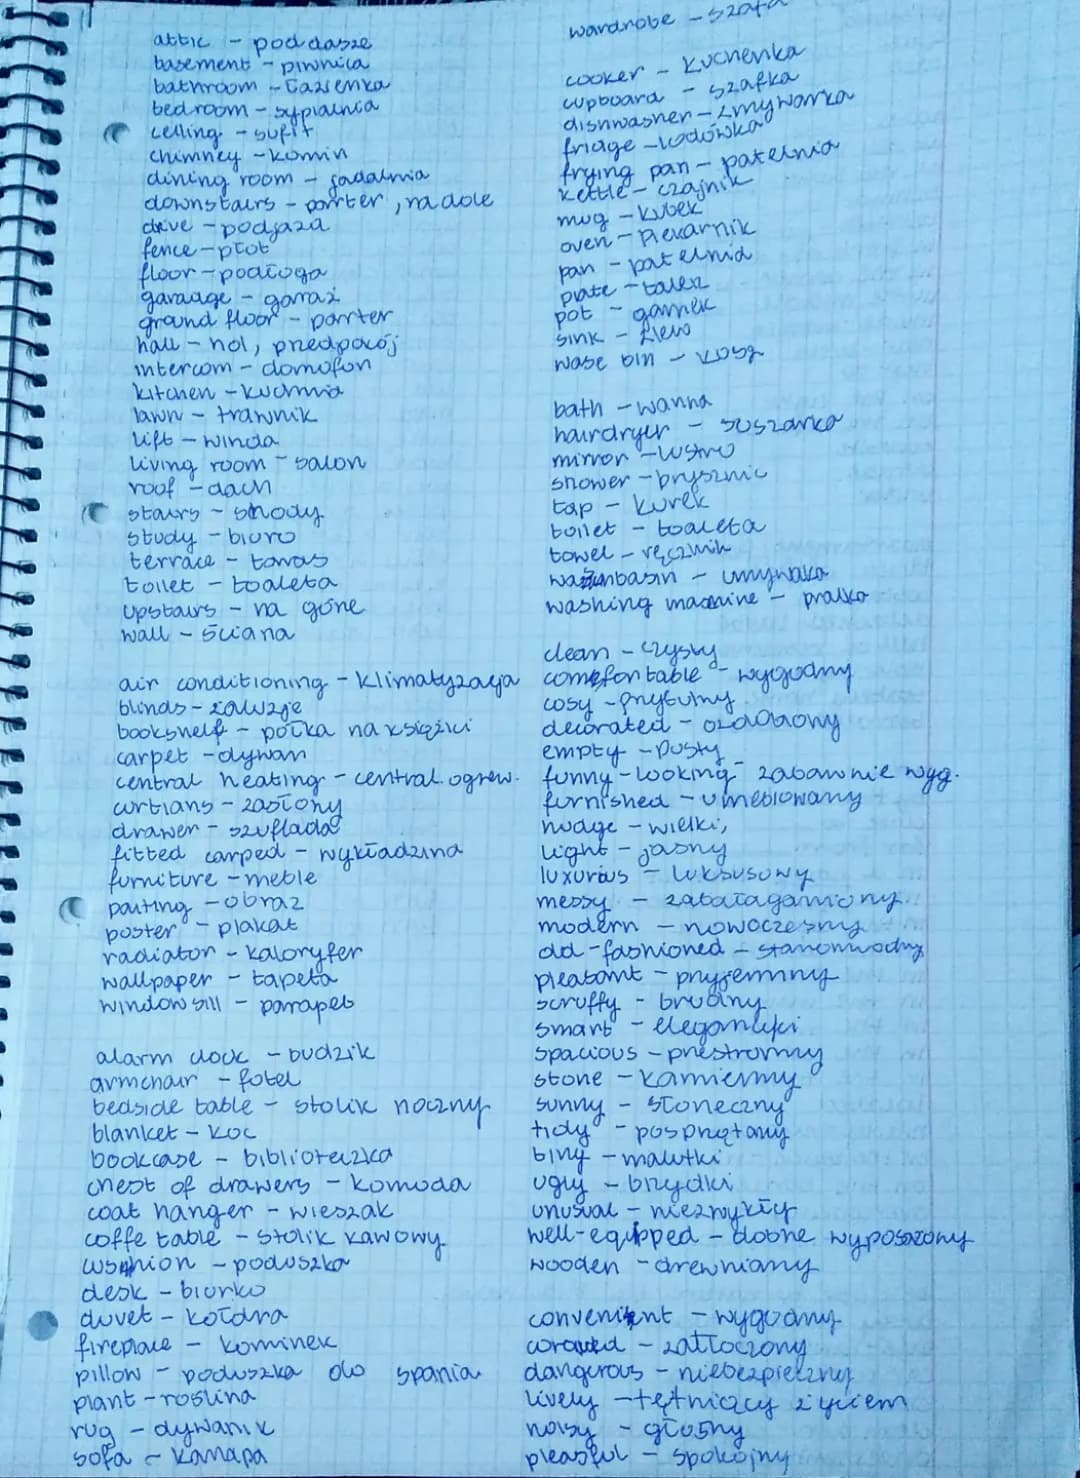 attic - poddasze
basement - piwnica
bathroom - łazienka
bedroom - sypialnia
celling - sufit
chimney - komin
dining room - jadalnia
downstairs - parter, na dole
drive - podjazd
fence - płot
floor - podłoga
garaage - garaż
ground floor - parter
hall - hol, przedpokój
intercom - domofon
kitchen - kuchnia
lawn - trawnik
lift - winda
living room - salon
roof - dach
stairs - schody
study - biuro
terrace - taras
toilet - toaleta
upstairs - na górze
wall - ściana
air conditioning - klimatyzacja
blinds - żaluzje
bookshelf - półka na książki
carpet - dywan
central heating - central. ogrzew.
curtians - zasłony
drawer - szuflada
fitted carped - wykładzina
furniture - meble
painting - obraz
poster - plakat
radiator - kaloryfer
wallpaper - tapeta
window sill - parapet
alarm clock - budzik
armchair - fotel
bedside table - stolik nocny
blanket - koc
bookcase - biblioteczka
chest of drawers - komoda
coat hanger - wieszak
coffe table - stolik kawowy
cushion - poduszka
desk - biurko
duvet - kołdra
fireplace - kominek
pillow - poduszka do spania
plant - roślina
rug - dywanik
sofa - kanapa
wardrobe - szafa
cooker - kuchenka
cupboard - szafka
dishwasher - zmywarka
fridge - lodówka
frying pan - patelnia
kettle - czajnik
mug - kubek
oven - piekarnik
pan - patelnia
plate - talerz
pot - garnek
sink - zlew
wase bin - kosz
bath - wanna
hairdryer - suszarka
mirror - lustro
shower - prysznic
tap - kurek
toilet - toaleta
towel - ręcznik
washbasin - umywalka
washing machine - pralka
clean - czysty
comfortable - wygodny
cosy - przytulny
decorated - ozdobiony
empty - pusty
funny-looking - zabawnie wyg.
furnished - umeblowany
hudge - wielki,
light - jasny
luxurius - luksusowy
messy - zabałaganiony
modern - nowoczesny
old-fashioned - staromodny
pleasant - przyjemny
scruffy - brudny
smart - elegancki
spacious - przestronny
stone - kamienny
sunny - słoneczny
tidy - posprzątany
tiny - malutki
ugly - brzydki
unusual - niezwykły
well-equipped - dobrze wyposażony
wooden - drewniany
convenient - wygodny
crowded - zatłoczony
dangerous - niebezpieczny
lively - tętniący życiem
noisy - głośny
peasful - spokojny